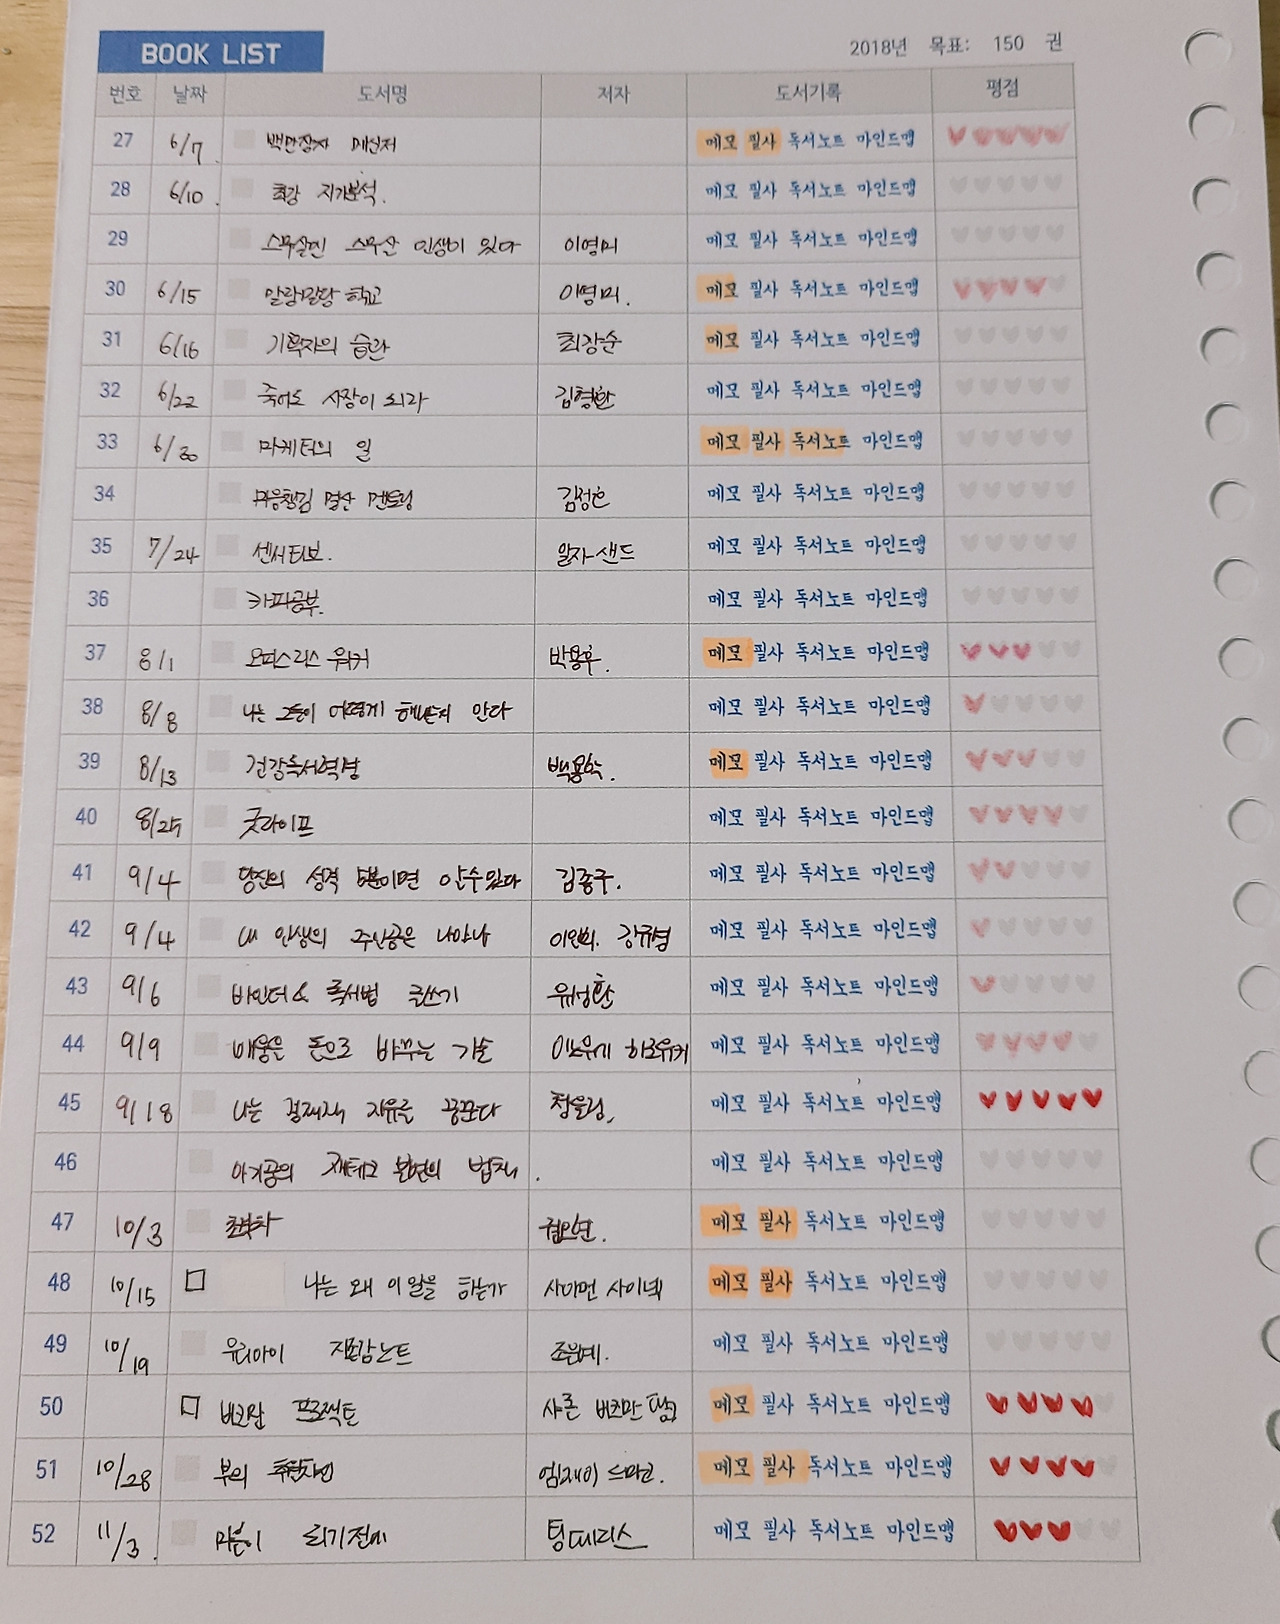 BOOK LIST
2018년 목표: 150 권
번호 날짜 도서명 저자 도서기록 평점
27 6/7 백만장자 메신저 메모 필사 독서노트 마인드맵
28 6/10 최강 지가분석. 메모 필사 독서노트 마인드맵
29 스무살엔 스무살 인생이 있다 이영미 메모 필사 독서노트 마인드맵
30 6/15 말랑말랑학교 이영미. 메모 필사 독서노트 마인드맵
31 6/16 기획자의 습관 최장순 메모 필사 독서노트 마인드맵
32 6/22 죽어도 사장이 되라 김형환 메모 필사 독서노트 마인드맵
33 6/30 마케터의 일 메모 필사 독서노트 마인드맵
34 마음챙김 명상 멘토링 김정호 메모 필사 독서노트 마인드맵
35 7/24 센서티브. 일자 샌드 메모 필사 독서노트 마인드맵
36 카피공부. 메모 필사 독서노트 마인드맵
37 8/1 오피스리스 워커 박용후. 메모 필사 독서노트 마인드맵
38 8/8 나는 그들이 어떻게 해냈는지 안다 메모 필사 독서노트 마인드맵
39 8/13 건강독서혁명 백용학. 메모 필사 독서노트 마인드맵
40 8/25 굿라이프 메모 필사 독서노트 마인드맵
41 9/4 당신의 성격 5분이면 알수있다 김종구. 메모 필사 독서노트 마인드맵
42 9/4 내 인생의 주인공은 나야나 이인희. 강규형 메모 필사 독서노트 마인드맵
43 9/6 바인더& 독서법 글쓰기 유성환 메모 필사 독서노트 마인드맵
44 9/9 배움은 돈으로 바꾸는 기술 이노우에 히로유키 메모 필사 독서노트 마인드맵
45 9/18 나는 경제적 자유를 꿈꾼다 청울림. 메모 필사 독서노트 마인드맵
46 아기곰의 재테크 불변의 법칙. 메모 필사 독서노트 마인드맵
47 10/3 초격차 권오현. 메모 필사 독서노트 마인드맵
48 10/15 나는 왜 이 일을 하는가 사이먼 사이넥 메모 필사 독서노트 마인드맵
49 10/19 우리아이 자존감노트 메모 필사 독서노트 마인드맵
50 버츄 프로젝트 메모 필사 독서노트 마인드맵
51 10/28 부의 추월차선 엠제이 드마코. 메모 필사 독서노트 마인드맵
52 11/3. 마흔이 되기전에 팀페리스 메모 필사 독서노트 마인드맵